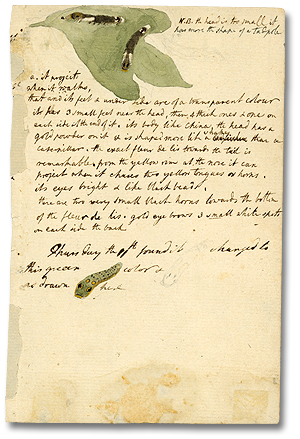 N.B. the head is too small, it
has more the shape of a Tadpole
a. it project
when it walks,
that and its feet & under like are of a transparent colour
its has 3 small feet near the head, then 4 thick ones & one on
each side of the end of it. its body like China, the head has a
gold powder on it & is shaped more like a than a
caterpillar. the exact fleur de lis towards the tail is
remarkable. from the yellow row at the nose it can
project when it chuses two yellow tongues or horns.
its eyes bright & like black beads.
there are two very small black horns towards the bottom
of the fleur de lis. gold eye brows 3 small white spots
on each side the back.
Thursday the found it changed to
this green colour &
as drawn here